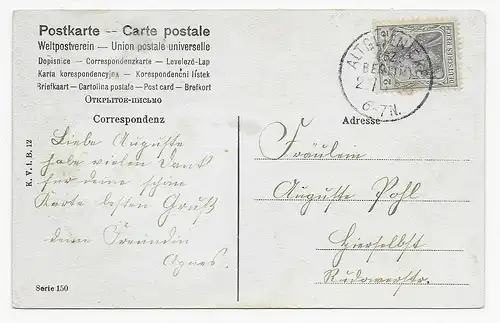 Postkarte — Carte postale
Weltpostverein — Union postale universelle
Dopisnice — Correspondenzkarte — Levelező-Lap
Karta korespondencyjna — Korespondenční lístek
Briefkaart — Cartolina postale — Post card — Brefkort
Открытое-письмо
Correspondenz
Liebe Auguste
habe vielen Dank
für deine schöne
Karte besten Gruß
deine Freundin
Agnes.
K. V. i. B. 12
Serie 150
BERLIN
6-7N.
DEUTSCHES REICH
Adresse
Fräulein
Auguste Pohl
Hierselbst
Rudowerstr.